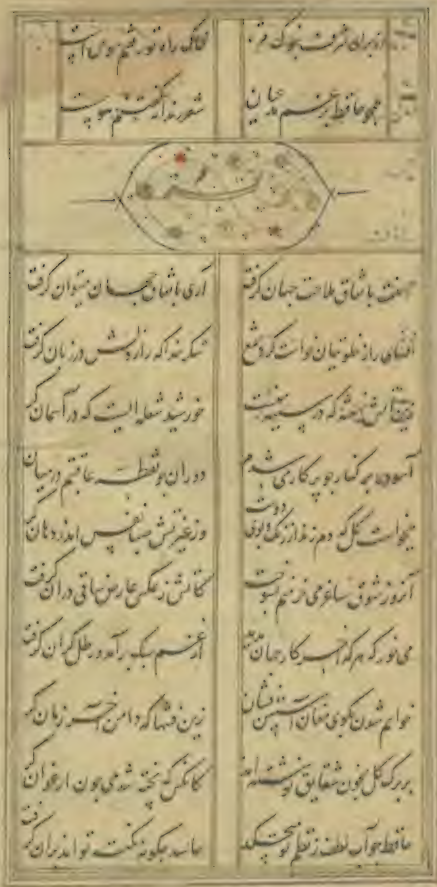 از برای شرف بنوک مژه
خاک راه تو رفتنم هوس است
همچو حافظ برغم مدعیان
شعر رندانه گفتنم هوس است
حسنت باتفاق ملاحت جهان گرفت
آری باتفاق جهان میتوان گرفت
افشای راز خلوتیان خواست کرد شمع
شکر خدا که راز دلش در زبان گرفت
زین آتش نهفته که در سینه منست
خورشید شعله ایست که در آسمان گرفت
آسوده بر کنار چو پرکار می شدم
دوران چو نقطه عاقبتم در میان گرفت
میخواست گل که دم زند از رنک و بوی دوست
وز غیرتش صبا نفس اندر دهان گرفت
آنروز شوق ساغر می خرمنم بسوخت
کاتش ز عکس عارض ساقی در آن گرفت
می خور که هر که آخر کار جهان بدید
از غم سبک برآمد و رطل گران گرفت
خواهم شدن بکوی مغان آستین فشان
زین فتنها که دامن آخر زمان گرفت
بر برک گل بخون شقایق نوشته اند
کانکس که پخته شد می چون ارغوان گرفت
حافظ چو آب لطف ز نظم تو میچکد
حاسد چگونه نکته تواند بر آن گرفت